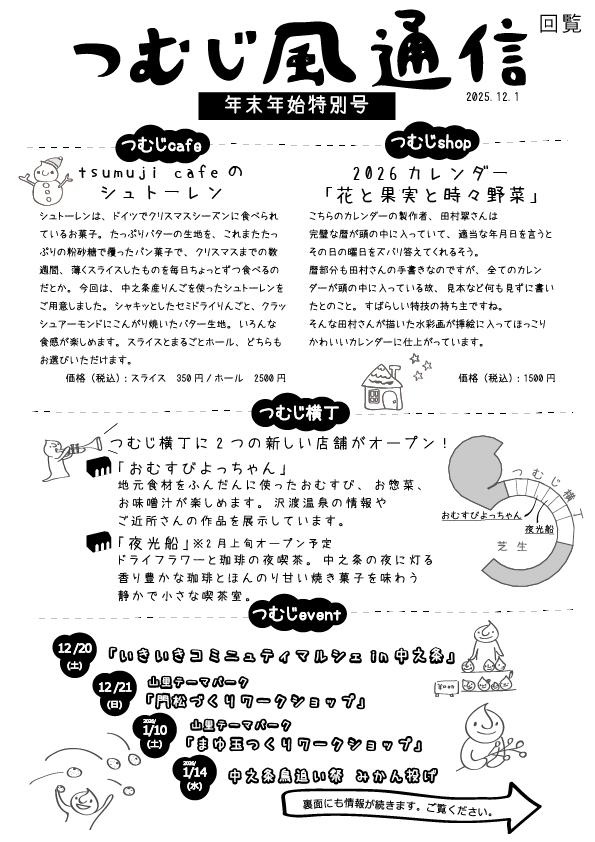 回覧
つむじ風通信
2025.12.1
年末年始特別号
つむじcafe
tsumuji cafeの
シュトーレン
シュトーレンは、ドイツでクリスマスシーズンに食べられ
ているお菓子。たっぷりバターの生地を、これまたたっ
ぷりの粉砂糖で覆ったパン菓子で、クリスマスまでの数
週間、薄くスライスしたものを毎日ちょっとずつ食べるの
だとか。今回は、中之条産りんごを使ったシュトーレンを
ご用意しました。シャキッとしたセミドライりんごと、クラッ
シュアーモンドにこんがり焼いたバター生地。いろんな
食感が楽しめます。スライスとまるごとホール、どちらも
お選びいただけます。
価格（税込）：スライス 350円/ホール 2500円
つむじshop
2026カレンダー
「花と果実と時々野菜」
こちらのカレンダーの製作者、田村翠さんは
完璧な暦が頭の中に入っていて、適当な年月日を言うと
その日の曜日をズバリ答えてくれるそう。
暦部分も田村さんの手書きなのですが、全てのカレン
ダーが頭の中に入っている故、見本など何も見ずに書い
たとのこと。すばらしい特技の持ち主ですね。
そんな田村さんが描いた水彩画が挿絵に入ってほっこり
かわいいカレンダーに仕上がっています。
価格（税込）：1500円
つむじ横丁
つむじ横丁に2つの新しい店舗がオープン！
「おむすびよっちゃん」
地元食材をふんだんに使ったおむすび、お惣菜、
お味噌汁が楽しめます。沢渡温泉の情報や
ご近所さんの作品を展示しています。
「夜光船」※2月上旬オープン予定
ドライフラワーと珈琲の夜喫茶。中之条の夜に灯る
香り豊かな珈琲とほんのり甘い焼き菓子を味わう
静かで小さな喫茶室。
つむじ横丁
おむすびよっちゃん
夜光船
芝生
つむじevent
12/20
(土)
「いきいきコミニュティマルシェin中之条」
12/21
(日)
山里テーマパーク
「門松づくりワークショップ」
2026/
1/10
(土)
山里テーマパーク
「まゆ玉つくりワークショップ」
2026/
1/14
(水)
中之条鳥追い祭 みかん投げ
裏面にも情報が続きます。ご覧ください。